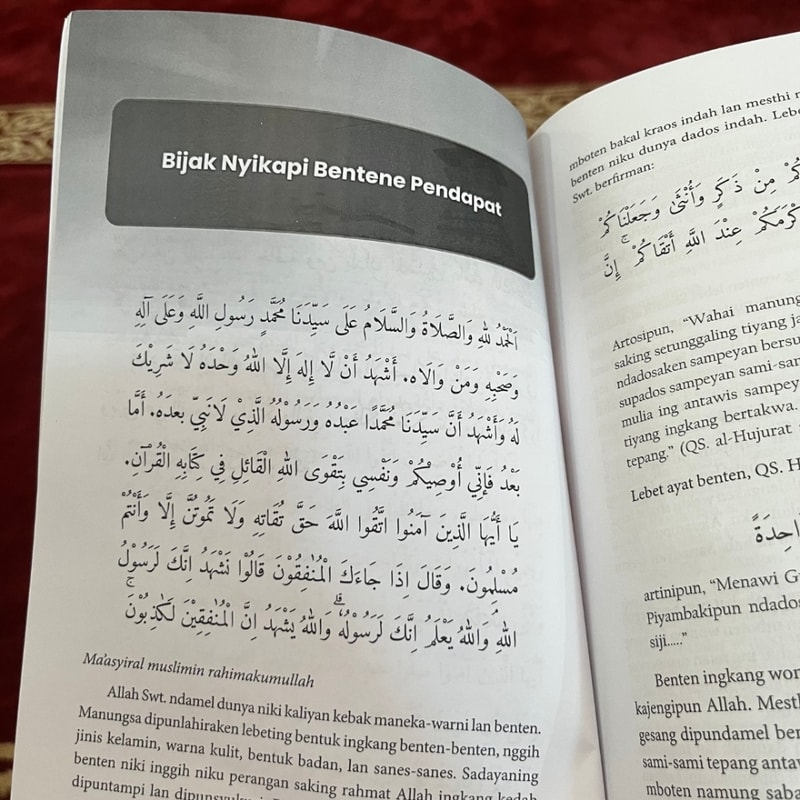 Bijak Nyikapi Bentene Pendapat
اَلْحَمْدُ لِلّٰهِ وَالصَّلَاةُ وَالسَّلَامُ عَلَى سَيِّدِنَا مُحَمَّدٍ رَسُولِ اللّٰهِ وَعَلَى آلِهِ
وَصَحْبِهِ وَمَنْ وَالَاه. أَشْهَدُ أَنْ لَّا إِلٰهَ إِلَّا اللّٰهُ وَحْدَهُ لَا شَرِيْكَ
لَهُ وَأَشْهَدُ أَنَّ سَيِّدَنَا مُحَمَّدًا عَبْدُهُ وَرَسُوْلُهُ الَّذِيْ لَا نَبِيَّ بعدَهُ. أَمَّا
بَعْدُ فَإِنِّي أُوصِيْكُمْ وَنَفْسِي بِتَقْوَى اللّٰهِ الْقَائِلِ فِي كِتَابِهِ الْقُرْآنِ.
يَا أَيُّهَا الَّذِينَ آمَنُوا اتَّقُوا اللَّهَ حَقَّ تُقَاتِهِ وَلَا تَمُوتُنَّ إِلَّا وَأَنْتُمْ
مُسْلِمُونَ. وَقَالَ اِذَا جَاءَكَ الْمُنٰفِقُوْنَ قَالُوْا نَشْهَدُ اِنَّكَ لَرَسُوْلُ
اللّٰهِ وَاللّٰهُ يَعْلَمُ اِنَّكَ لَرَسُوْلُهٗ ۗوَاللّٰهُ يَشْهَدُ اِنَّ الْمُنٰفِقِيْنَ لَكٰذِبُوْنَۚ
Ma'asyiral muslimin rahimakumullah
Allah Swt. ndamel dunya niki kaliyan kebak maneka-warni lan benten.
Manungsa dipunlahiraken lebeting bentuk ingkang benten-benten, nggih
jinis kelamin, warna kulit, bentuk badan, lan sanes-sanes. Sadayaning
benten niki inggih niku perangan saking rahmat Allah ingkang kedah
dipuntampi lan
mboten bakal kraos indah lan mesthi
benten niku dunya dados indah.
Swt. berfirman:
مِنْ ذَكَرٍ وَأُنْثَى وَجَعَلْنَاكُمْ
عِنْدَ اللَّهِ أَتْقَاكُمْ ۚ إِنَّ
Artosipun, "Wahai
saking setunggaling tiyang
ndadosaken sampeyan
supados sampeyan
mulia ing antawis
tiyang ingkang bertakwa.
tepang." (QS. al-Hujurat
Lebet ayat benten, QS.
artinipun, "Menawi
Piyambakipun
siji....."
Benten ingkang
kajengipun Allah.
gesang dipundamel
sami-sami tepang
mboten namung